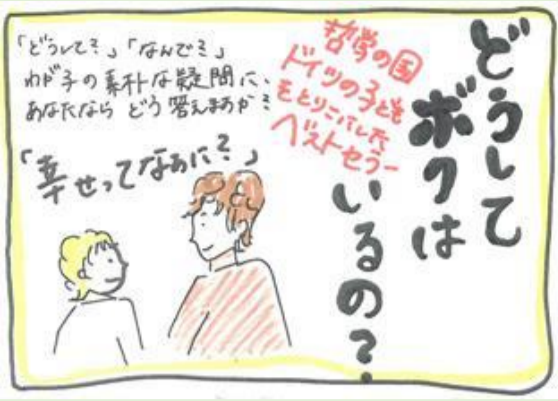 どうして
ボクは
いるの?
哲学の国
ドイツの子ども
をとりこにした
ベストセラー
「どうして?」「なんで?」
わが子の素朴な疑問に、
あなたなら どう答えますか?
「幸せってなあに?」